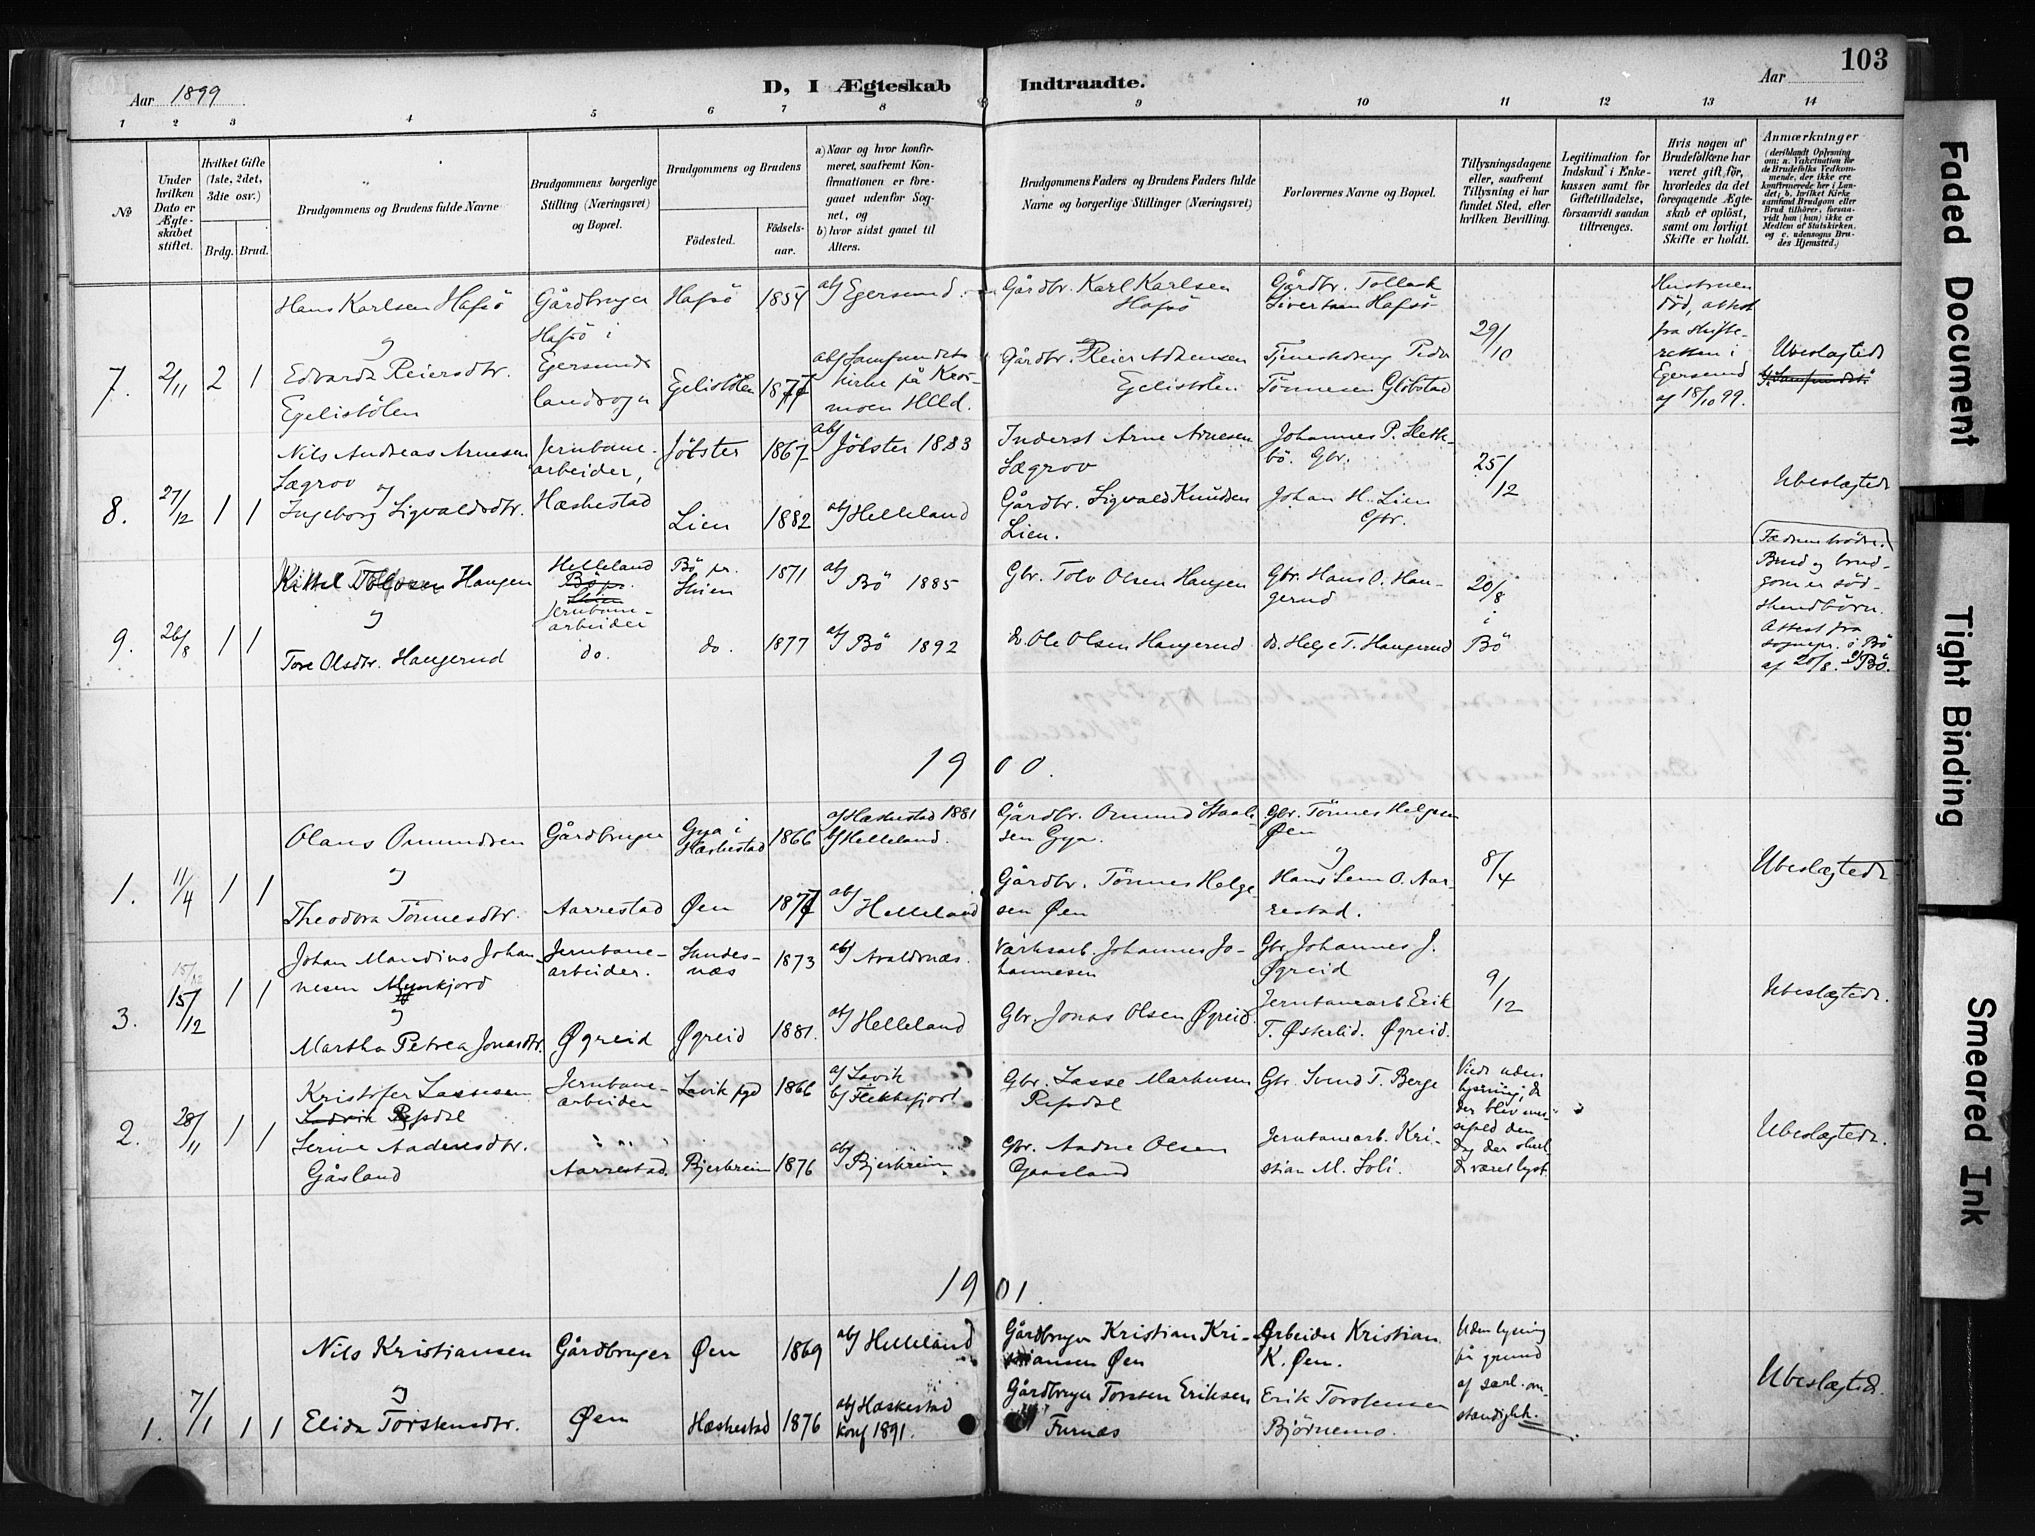 103
Aar 1899
D, I Ægteskab Indtraadte.
Aar
1 2 3 4 5 6 7 8 9 10 11 12 13 14
No
Under hvilken Dato er Ægteskabet stiftet.
Hvilket Gifte (1ste, 2det, 3die osv.)
Brdg. Brud.
Brudgommens og Brudens fulde Navne
Brudgommens borgerlige Stilling (Næringsvei) og Bopæl.
Brudgommens og Brudens
Födested.
Födsels-aar.
a) Naar og hvor konfirmeret, saafremt Konfirmationen er foregaaet udenfor Sognet, og
b) hvor sidst gaaet til Alters.
Brudgommens Faders og Brudens Faders fulde Navne og borgerlige Stillinger (Næringsvei)
Forlovernes Navne og Bopæl.
Tillysningsdagene eller, saafremt Tillysning ei har fundet Sted, efter hvilken Bevilling.
Legitimation for Indskud i Enkekassen samt for Giftetilladelse, forsaavidt saadan tiltrænges.
Hvis nogen af Brudefolkene har været gift för, hvorledes da det foregaaende Ægteskab er oplöst, samt om lovligt Skifte er holdt.
Anmærkninger
(deriblandt Oplysning om: a. Vakcination för de Brudefolks Vedkommende, der ikke ere konfirmerede her i Landet; b. hvilket Kirkesamfund Brudgom eller Brud tilhörer, forsaavidt han (hun) ikke er Medlem af Statskirken, og c. udensogns Brudes Hjemsted.)
7. 2/11 2 1
Hans Karlsen Hafsö
og
Edvarda Reiersdtr.
Egelistölen
Gårdbruger
Hafsö i
Egersunds
landsogn
Hafsö 1854
Egelistölen 1877
ab) Egersund.
ab) Samfundets
kirke på Kros-
moen Hlld.
Gårdbr. Karl Karlsen
Hafsö
Gårdbr. Reier Adnensen
Egelistölen
Gårdbr. Tollak
Sivertsen Hafsö
Tjenestedreng Peder
Tönnesen Glöbstad
29/10
Hustruen
död, attest
fra skifte-
retten i
Egersund
af 18/10 99.
Ubeslægtede
8. 27/12 1 1
Nils Andreas Arnesen
Sægrov
og
Ingeborg Sigvaldsdtr.
Jernbane-
arbeider,
Hæskestad
Jölster 1867
Lien 1882
ab) Jölster 1883
ab) Helleland
Inderst Arne Arnesen
Sægrov
Gårdbr. Sigvald Knudsen
Lien.
Johannes P. Slett-
bö. Gbr.
Johan H. Lien
Gbr.
25/12
Ubeslægtede
9. 26/8 1 1
Kittil Tolfsen Haugen
og
Tore Olsdtr. Haugerud
Helleland
Bö pr.
Skien
Jernbane-
arbeider
do.
Bö pr.
Skien 1871
do. 1877
ab) Bö 1885
ab) Bö 1892
Gbr. Tolv Olsen Haugen
do. Ole Olsen Haugerud
Gbr. Hans O. Hau-
gerud
do. Helge T. Haugerud
20/8
i
Bö
Fædrene brödre.
Brud og brud-
gom er söd-
skendbörn.
Attest fra
sognepr. i Bö
af 20/8. Bö.
1900.
1. 11/4 1 1
Olaus Omundsen
og
Theodora Tönnesdtr.
Gårdbruger
Aarrestad
Gya i
Hæskestad 1866
Øen 1877
a) Hæskestad 1881
b) Helleland.
ab) Helleland
Gårdbr. Omund Staale-
sen Gya.
Gårdbr. Tönnes Helge-
sen Øen
Gbr. Tönnes Helgesen
Øen
og
Hans Sem O. Aar-
restad.
8/4
Ubeslægtede
3. 15/12 1 1
Johan Mandius Johan-
nesen Mynkjord
og
Martha Petrea Jonasdtr.
Jernbane-
arbeider.
Øgreid
Sandes-
næs 1873
Øgreid 1881.
ab) Avaldsnæs.
ab) Helleland
Værksarb. Johannes Jo-
hannesen
Gbr. Jonas Olsen Øgreid.
Gbr. Johannes J.
Øgreid
Jernbanearb. Erik
T. Østerlid. Øgreid.
9/12
Ubeslægtede.
2. 28/11 1 1
Kristofer Lassesen
Ladvik Repdal
Serine Aadnesdtr.
Gåsland
Jernbane-
arbeider
Aarrestad.
Lavik pgd 1866
Bjerkreim 1876
a) Lavik
b) Flekkefjord
ab) Bjerkreim
Gbr. Lasse Markusen
Repdal
Gbr. Aadne Olsen
Gaasland
Gbr. Svend T. Berge
Jernbanearb. Kri-
stian M. Soli.
Viede uden
lysning, da
der blev mes-
sefald den
dag der skul-
de været lyst.
Ubeslægtede.
1901.
1. 7/1 1 1
Nils Kristiansen
og
Elida Torstensdtr.
Gårdbruger
Øen
Øen 1869
Hæskestad 1876
ab) Helleland
ab) Hæskestad
Konf 1891.
Gårdbruger Kristian Kri-
stiansen Øen
Gårdbruger Torsten Eriksen
Furnæs
Arbeider Kristian
K. Øen.
Erik Torstensen
Björnemo.
Uden lysning
på grund
af særl. om-
stændighh.
Ubeslægtede.
Faded Document
Tight Binding
Smeared Ink